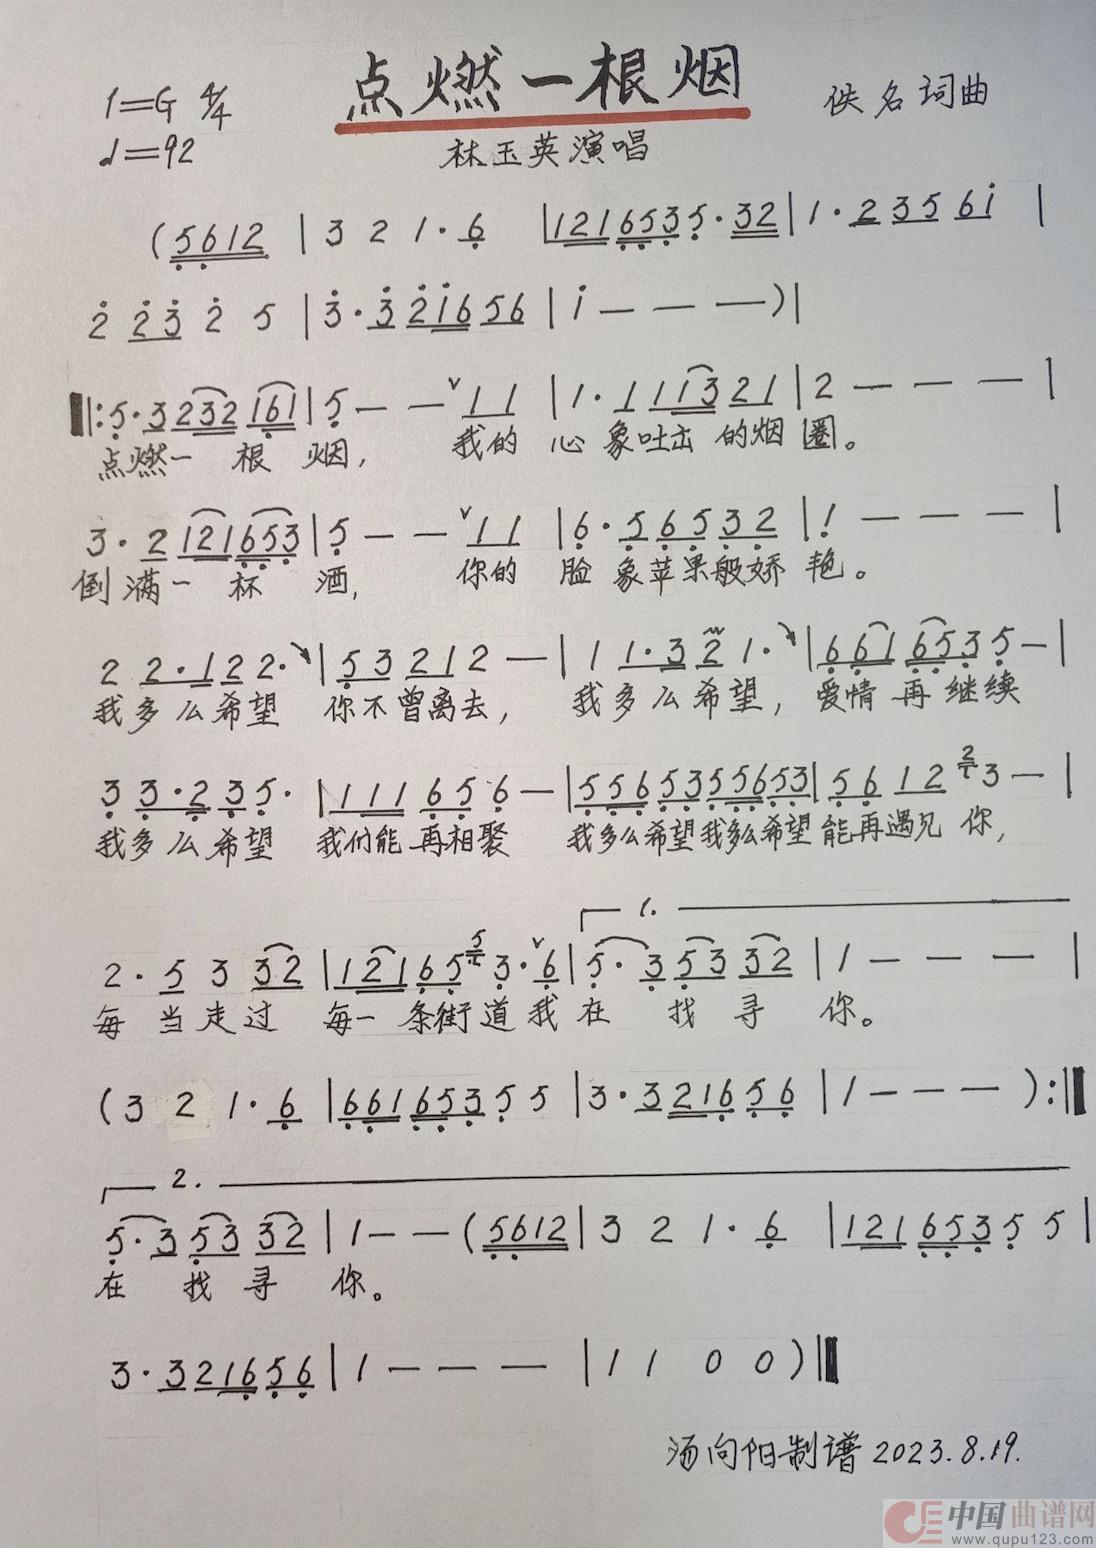 点燃一根烟
1=G 4/4
佚名词曲
♩=92
林玉英演唱
(5612 | 3 2 1·6 | 1216535·32 | 1·2 35 61 |
2 23 2 5 | 3·3 2165 6 | 1 — — —)|
‖:5·3 232 161 | 5 — — ∨11 | 1·1 113 21 | 2 — — — |
点燃一 根 烟, 我的 心 象吐出 的烟 圈。
3·2 121653 | 5 — — ∨11 | 6·5 65 32 | 1 — — — |
倒满一 杯 酒, 你的 脸 象苹果般娇 艳。
2 2·1 22 2· | 53 21 2 — | 1 1·3 2 1· | 661 653 5 — |
我多么希望 你不曾离去, 我多么希望, 爱情再继续
3 3·2 35· | 111 65 6 — | 556 53 556 53 | 56 12 2 3 — |
我多么希望 我们能再相聚 我多么希望我多么希望 能再遇见 你,
1.
2·5 3 32 | 121 65 5 3·∨6 | 5·3 53 32 | 1 — — — |
每 当走过 每一条街道我在 找 寻 你。
(3 2 1·6 | 661 653 5 5 | 3·3 216 56 | 1 — — —):‖
2.
5·3 53 32 | 1 — — (5612 | 3 2 1·6 | 121 653 5 5 |
在 找 寻 你。
3·3 216 56 | 1 — — — | 1 1 0 0)‖
汤向阳制谱 2023.8.19.
中国曲谱网
www.qupu123.com